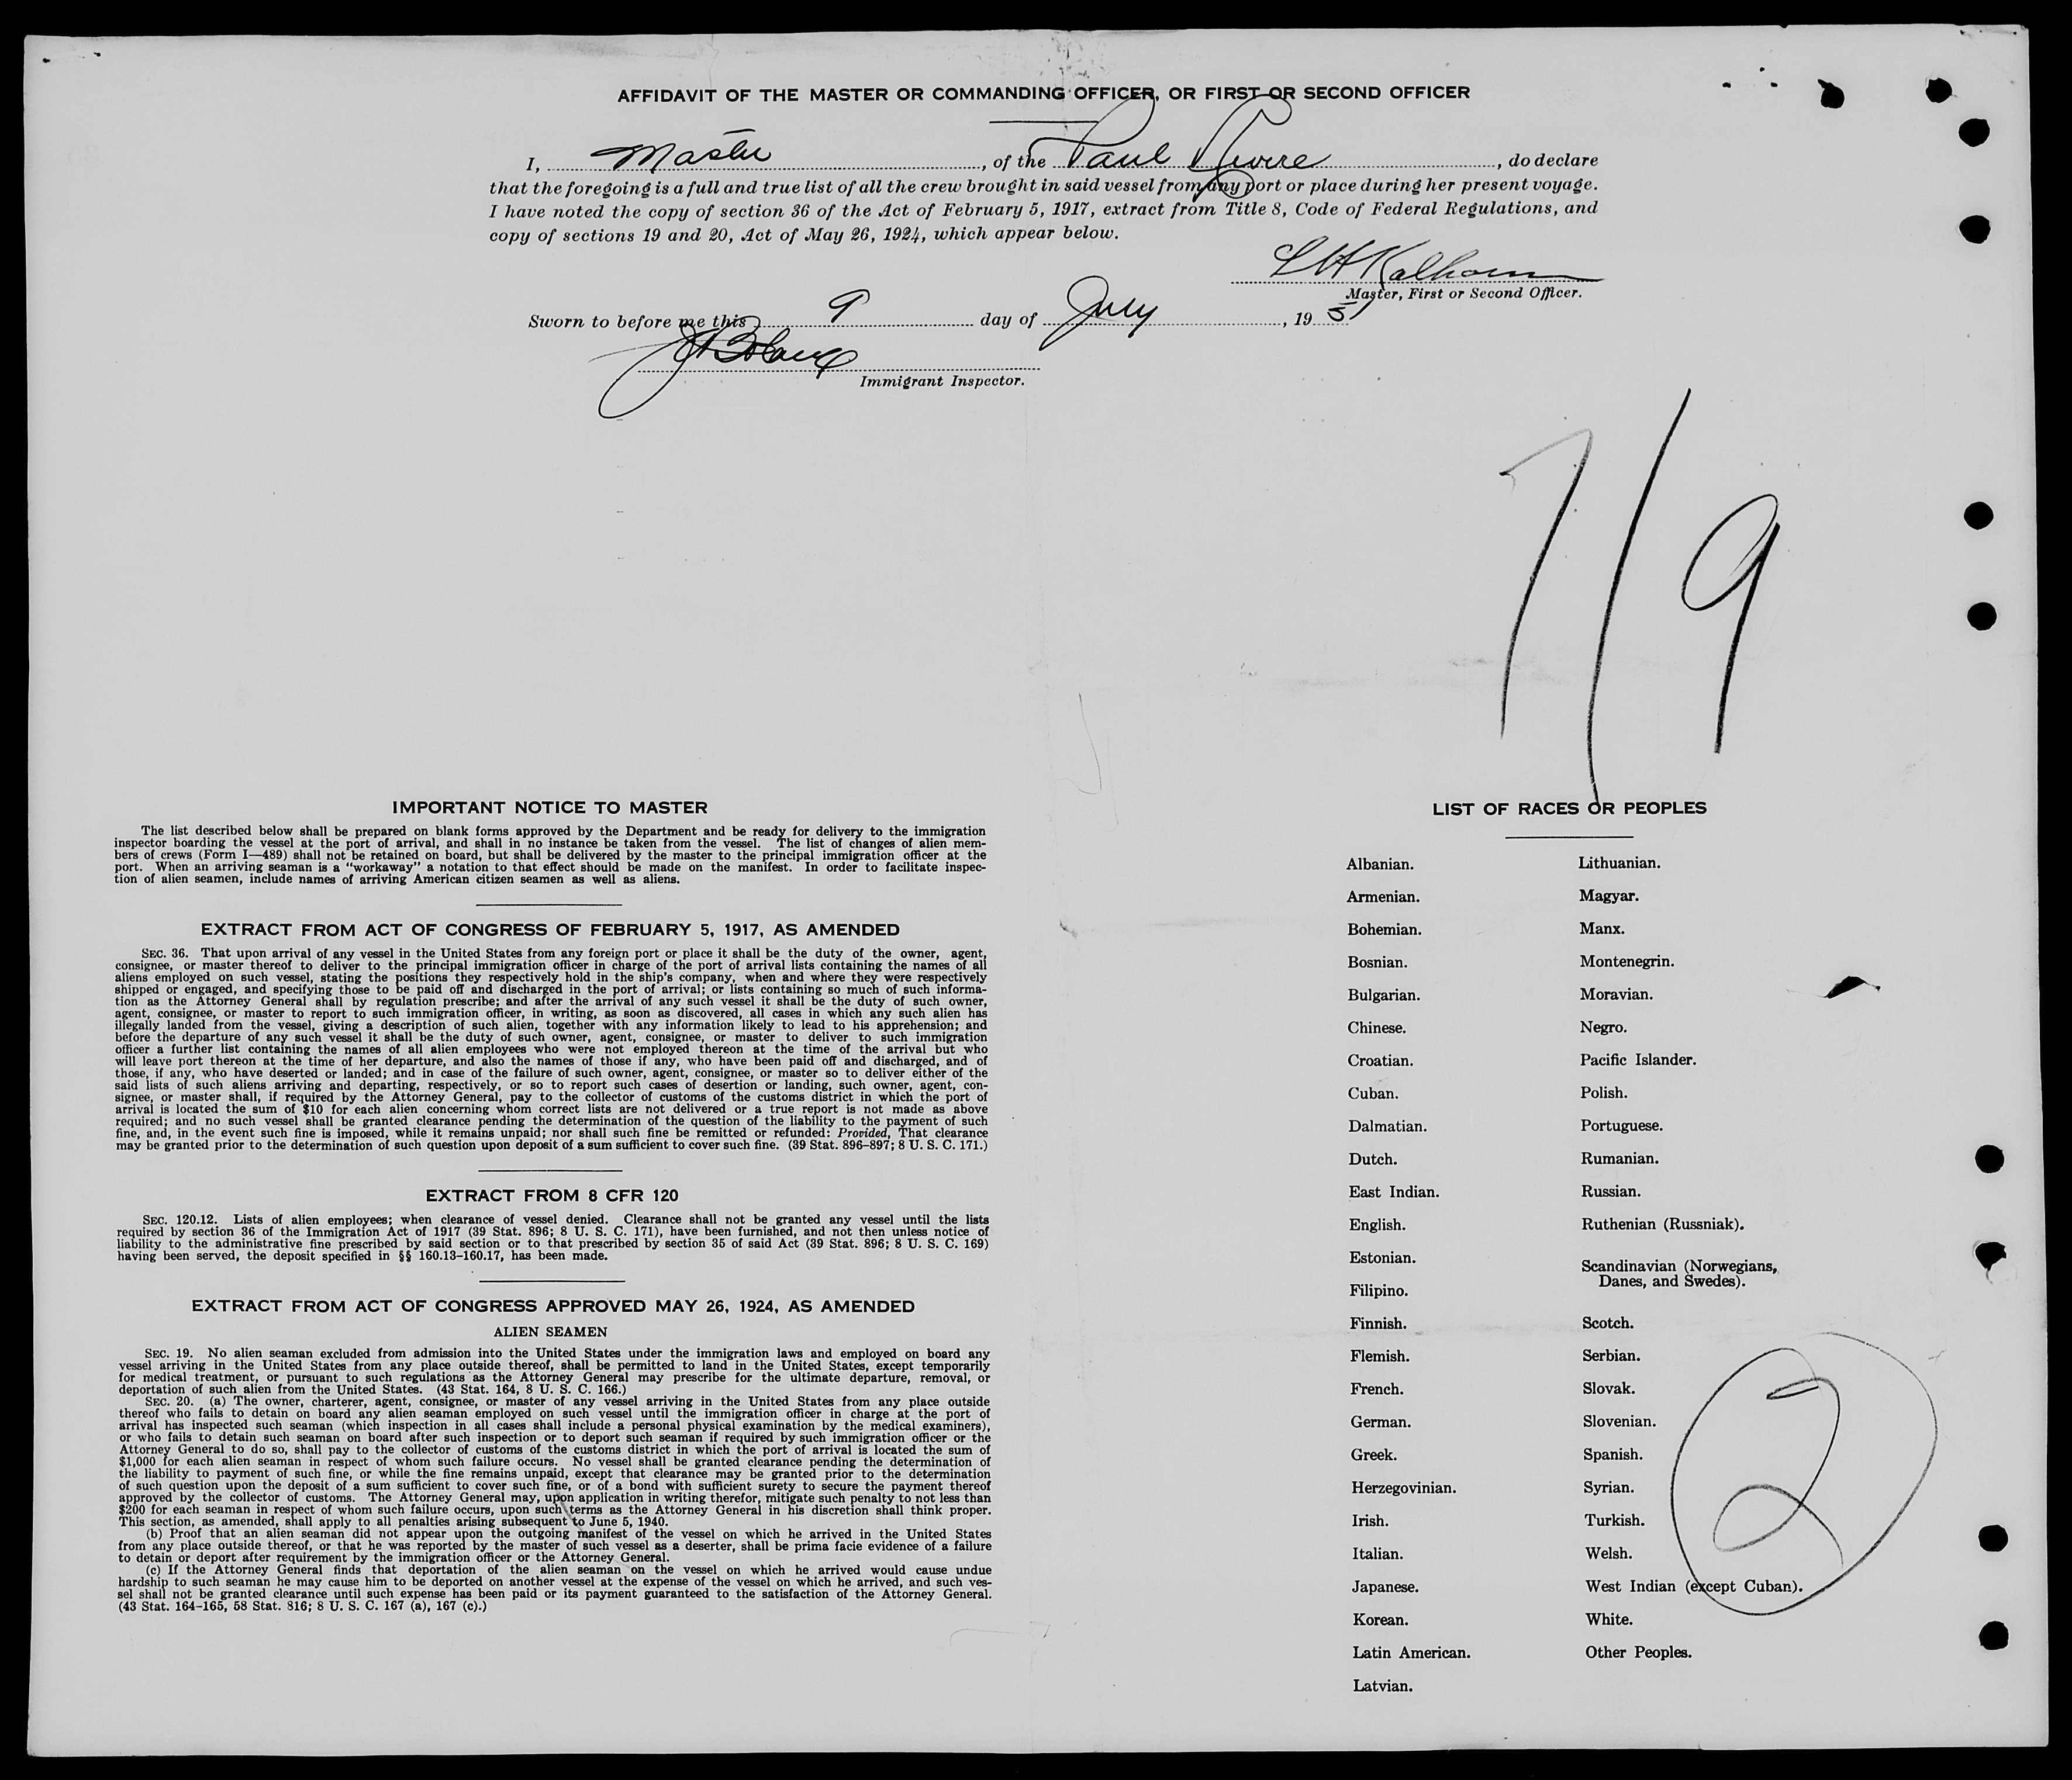 AFFIDAVIT OF THE MASTER OR COMMANDING OFFICER, OR FIRST OR SECOND OFFICER
I, Master, of the Paul Revere, do declare
that the foregoing is a full and true list of all the crew brought in said vessel from any port or place during her present voyage.
I have noted the copy of section 36 of the Act of February 5, 1917, extract from Title 8, Code of Federal Regulations, and
copy of sections 19 and 20, Act of May 26, 1924, which appear below.
L H Kalhorn
Master, First or Second Officer.
Sworn to before me this 9 day of July, 1951
Immigrant Inspector.
7/9
IMPORTANT NOTICE TO MASTER
The list described below shall be prepared on blank forms approved by the Department and be ready for delivery to the immigration
inspector boarding the vessel at the port of arrival, and shall in no instance be taken from the vessel. The list of changes of alien mem-
bers of crews (Form I—489) shall not be retained on board, but shall be delivered by the master to the principal immigration officer at the
port. When an arriving seaman is a "workaway" a notation to that effect should be made on the manifest. In order to facilitate inspec-
tion of alien seamen, include names of arriving American citizen seamen as well as aliens.
EXTRACT FROM ACT OF CONGRESS OF FEBRUARY 5, 1917, AS AMENDED
SEC. 36. That upon arrival of any vessel in the United States from any foreign port or place it shall be the duty of the owner, agent,
consignee, or master thereof to deliver to the principal immigration officer in charge of the port of arrival lists containing the names of all
aliens employed on such vessel, stating the positions they respectively hold in the ship's company, when and where they were respectively
shipped or engaged, and specifying those to be paid off and discharged in the port of arrival; or lists containing so much of such informa-
tion as the Attorney General shall by regulation prescribe; and after the arrival of any such vessel it shall be the duty of such owner,
agent, consignee, or master to report to such immigration officer, in writing, as soon as discovered, all cases in which any such alien has
illegally landed from the vessel, giving a description of such alien, together with any information likely to lead to his apprehension; and
before the departure of any such vessel it shall be the duty of such owner, agent, consignee, or master to deliver to such immigration
officer a further list containing the names of all alien employees who were not employed thereon at the time of the arrival but who
will leave port thereon at the time of her departure, and also the names of those if any, who have been paid off and discharged, and of
those, if any, who have deserted or landed; and in case of the failure of such owner, agent, consignee, or master so to deliver either of the
said lists of such aliens arriving and departing, respectively, or so to report such cases of desertion or landing, such owner, agent, con-
signee, or master shall, if required by the Attorney General, pay to the collector of customs of the customs district in which the port of
arrival is located the sum of $10 for each alien concerning whom correct lists are not delivered or a true report is not made as above
required; and no such vessel shall be granted clearance pending the determination of the question of the liability to the payment of such
fine, and, in the event such fine is imposed, while it remains unpaid; nor shall such fine be remitted or refunded: Provided, That clearance
may be granted prior to the determination of such question upon deposit of a sum sufficient to cover such fine. (39 Stat. 896–897; 8 U. S. C. 171.)
EXTRACT FROM 8 CFR 120
SEC. 120.12. Lists of alien employees; when clearance of vessel denied. Clearance shall not be granted any vessel until the lists
required by section 36 of the Immigration Act of 1917 (39 Stat. 896; 8 U. S. C. 171), have been furnished, and not then unless notice of
liability to the administrative fine prescribed by said section or to that prescribed by section 35 of said Act (39 Stat. 896; 8 U. S. C. 169)
having been served, the deposit specified in §§ 160.13–160.17, has been made.
EXTRACT FROM ACT OF CONGRESS APPROVED MAY 26, 1924, AS AMENDED
ALIEN SEAMEN
SEC. 19. No alien seaman excluded from admission into the United States under the immigration laws and employed on board any
vessel arriving in the United States from any place outside thereof, shall be permitted to land in the United States, except temporarily
for medical treatment, or pursuant to such regulations as the Attorney General may prescribe for the ultimate departure, removal, or
deportation of such alien from the United States. (43 Stat. 164, 8 U. S. C. 166.)
SEC. 20. (a) The owner, charterer, agent, consignee, or master of any vessel arriving in the United States from any place outside
thereof who fails to detain on board any alien seaman employed on such vessel until the immigration officer in charge at the port of
arrival has inspected such seaman (which inspection in all cases shall include a personal physical examination by the medical examiners),
or who fails to detain such seaman on board after such inspection or to deport such seaman if required by such immigration officer or the
Attorney General to do so, shall pay to the collector of customs of the customs district in which the port of arrival is located the sum of
$1,000 for each alien seaman in respect of whom such failure occurs. No vessel shall be granted clearance pending the determination of
the liability to payment of such fine, or while the fine remains unpaid, except that clearance may be granted prior to the determination
of such question upon the deposit of a sum sufficient to cover such fine, or of a bond with sufficient surety to secure the payment thereof
approved by the collector of customs. The Attorney General may, upon application in writing therefor, mitigate such penalty to not less than
$200 for each seaman in respect of whom such failure occurs, upon such terms as the Attorney General in his discretion shall think proper.
This section, as amended, shall apply to all penalties arising subsequent to June 5, 1940.
(b) Proof that an alien seaman did not appear upon the outgoing manifest of the vessel on which he arrived in the United States
from any place outside thereof, or that he was reported by the master of such vessel as a deserter, shall be prima facie evidence of a failure
to detain or deport after requirement by the immigration officer or the Attorney General.
(c) If the Attorney General finds that deportation of the alien seaman on the vessel on which he arrived would cause undue
hardship to such seaman he may cause him to be deported on another vessel at the expense of the vessel on which he arrived, and such ves-
sel shall not be granted clearance until such expense has been paid or its payment guaranteed to the satisfaction of the Attorney General.
(43 Stat. 164–165, 58 Stat. 816; 8 U. S. C. 167 (a), 167 (c).)
LIST OF RACES OR PEOPLES
Albanian.
Armenian.
Bohemian.
Bosnian.
Bulgarian.
Chinese.
Croatian.
Cuban.
Dalmatian.
Dutch.
East Indian.
English.
Estonian.
Filipino.
Finnish.
Flemish.
French.
German.
Greek.
Herzegovinian.
Irish.
Italian.
Japanese.
Korean.
Latin American.
Latvian.
Lithuanian.
Magyar.
Manx.
Montenegrin.
Moravian.
Negro.
Pacific Islander.
Polish.
Portuguese.
Rumanian.
Russian.
Ruthenian (Russniak).
Scandinavian (Norwegians,
Danes, and Swedes).
Scotch.
Serbian.
Slovak.
Slovenian.
Spanish.
Syrian.
Turkish.
Welsh.
West Indian (except Cuban).
White.
Other Peoples.
2